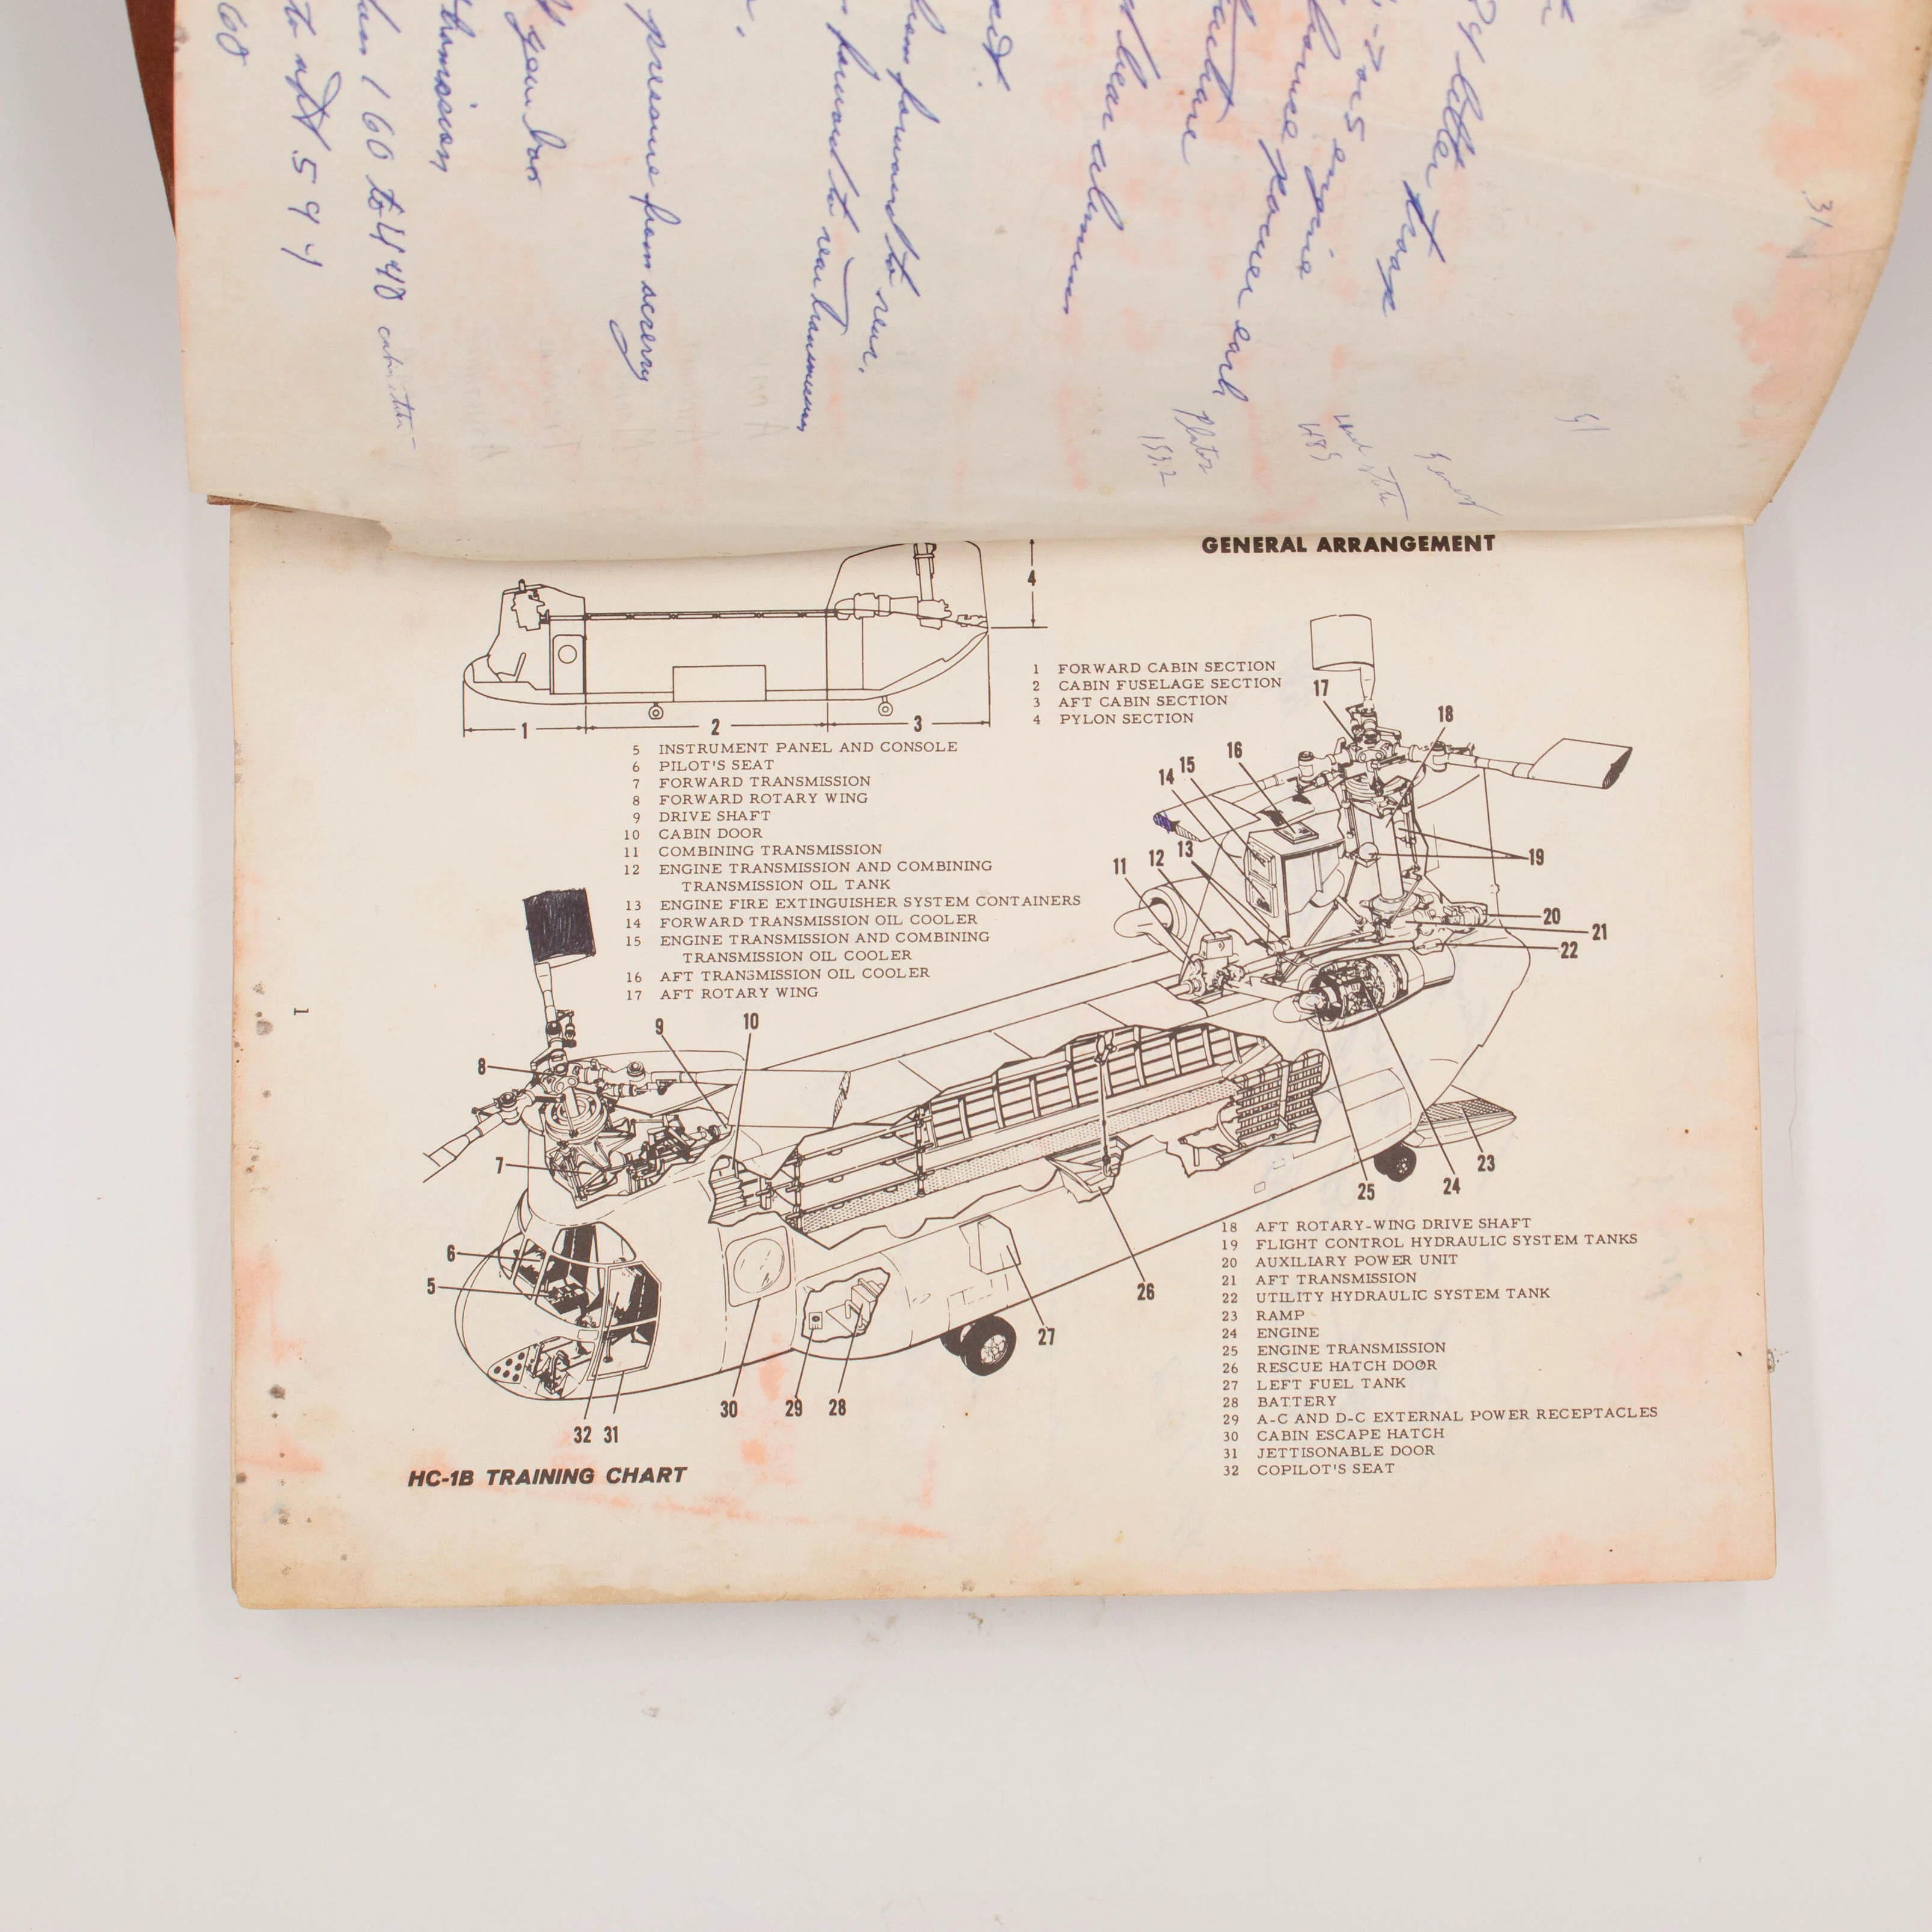 31
better
engine
horse power each
aluminum
from forward to rear.
forward to rear transmission
pressure from
60 to 440
to aft 5
60
GENERAL ARRANGEMENT
4
1 FORWARD CABIN SECTION
2 CABIN FUSELAGE SECTION
3 AFT CABIN SECTION
4 PYLON SECTION
1 2 3
5 INSTRUMENT PANEL AND CONSOLE
6 PILOT'S SEAT
7 FORWARD TRANSMISSION
8 FORWARD ROTARY WING
9 DRIVE SHAFT
10 CABIN DOOR
11 COMBINING TRANSMISSION
12 ENGINE TRANSMISSION AND COMBINING
TRANSMISSION OIL TANK
13 ENGINE FIRE EXTINGUISHER SYSTEM CONTAINERS
14 FORWARD TRANSMISSION OIL COOLER
15 ENGINE TRANSMISSION AND COMBINING
TRANSMISSION OIL COOLER
16 AFT TRANSMISSION OIL COOLER
17 AFT ROTARY WING
17
18
16
15
14
13
12
11
19
20
21
22
9
10
8
7
6
5
23
24
25
26
27
28
29
30
32 31
18 AFT ROTARY-WING DRIVE SHAFT
19 FLIGHT CONTROL HYDRAULIC SYSTEM TANKS
20 AUXILIARY POWER UNIT
21 AFT TRANSMISSION
22 UTILITY HYDRAULIC SYSTEM TANK
23 RAMP
24 ENGINE
25 ENGINE TRANSMISSION
26 RESCUE HATCH DOOR
27 LEFT FUEL TANK
28 BATTERY
29 A-C AND D-C EXTERNAL POWER RECEPTACLES
30 CABIN ESCAPE HATCH
31 JETTISONABLE DOOR
32 COPILOT'S SEAT
HC-1B TRAINING CHART
1